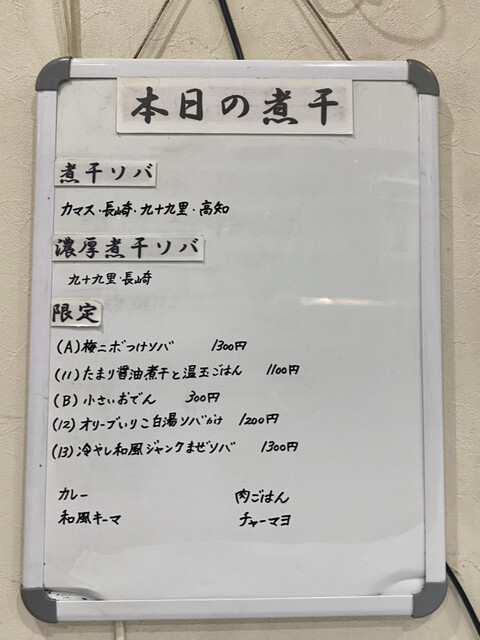 本日の煮干
煮干ソバ
カマス・長崎・九十九里・高知
濃厚煮干ソバ
九十九里・長崎
限定
(A) 梅ニボつけソバ 1300円
(11) たまり醤油煮干と温玉ごはん 1100円
(B) 小さいおでん 300円
(12) オリーブいりこ白湯ソバかけ 1200円
(13) 冷やし和風ジャンクまぜソバ 1300円
カレー 肉ごはん
和風キーマ チャーマヨ